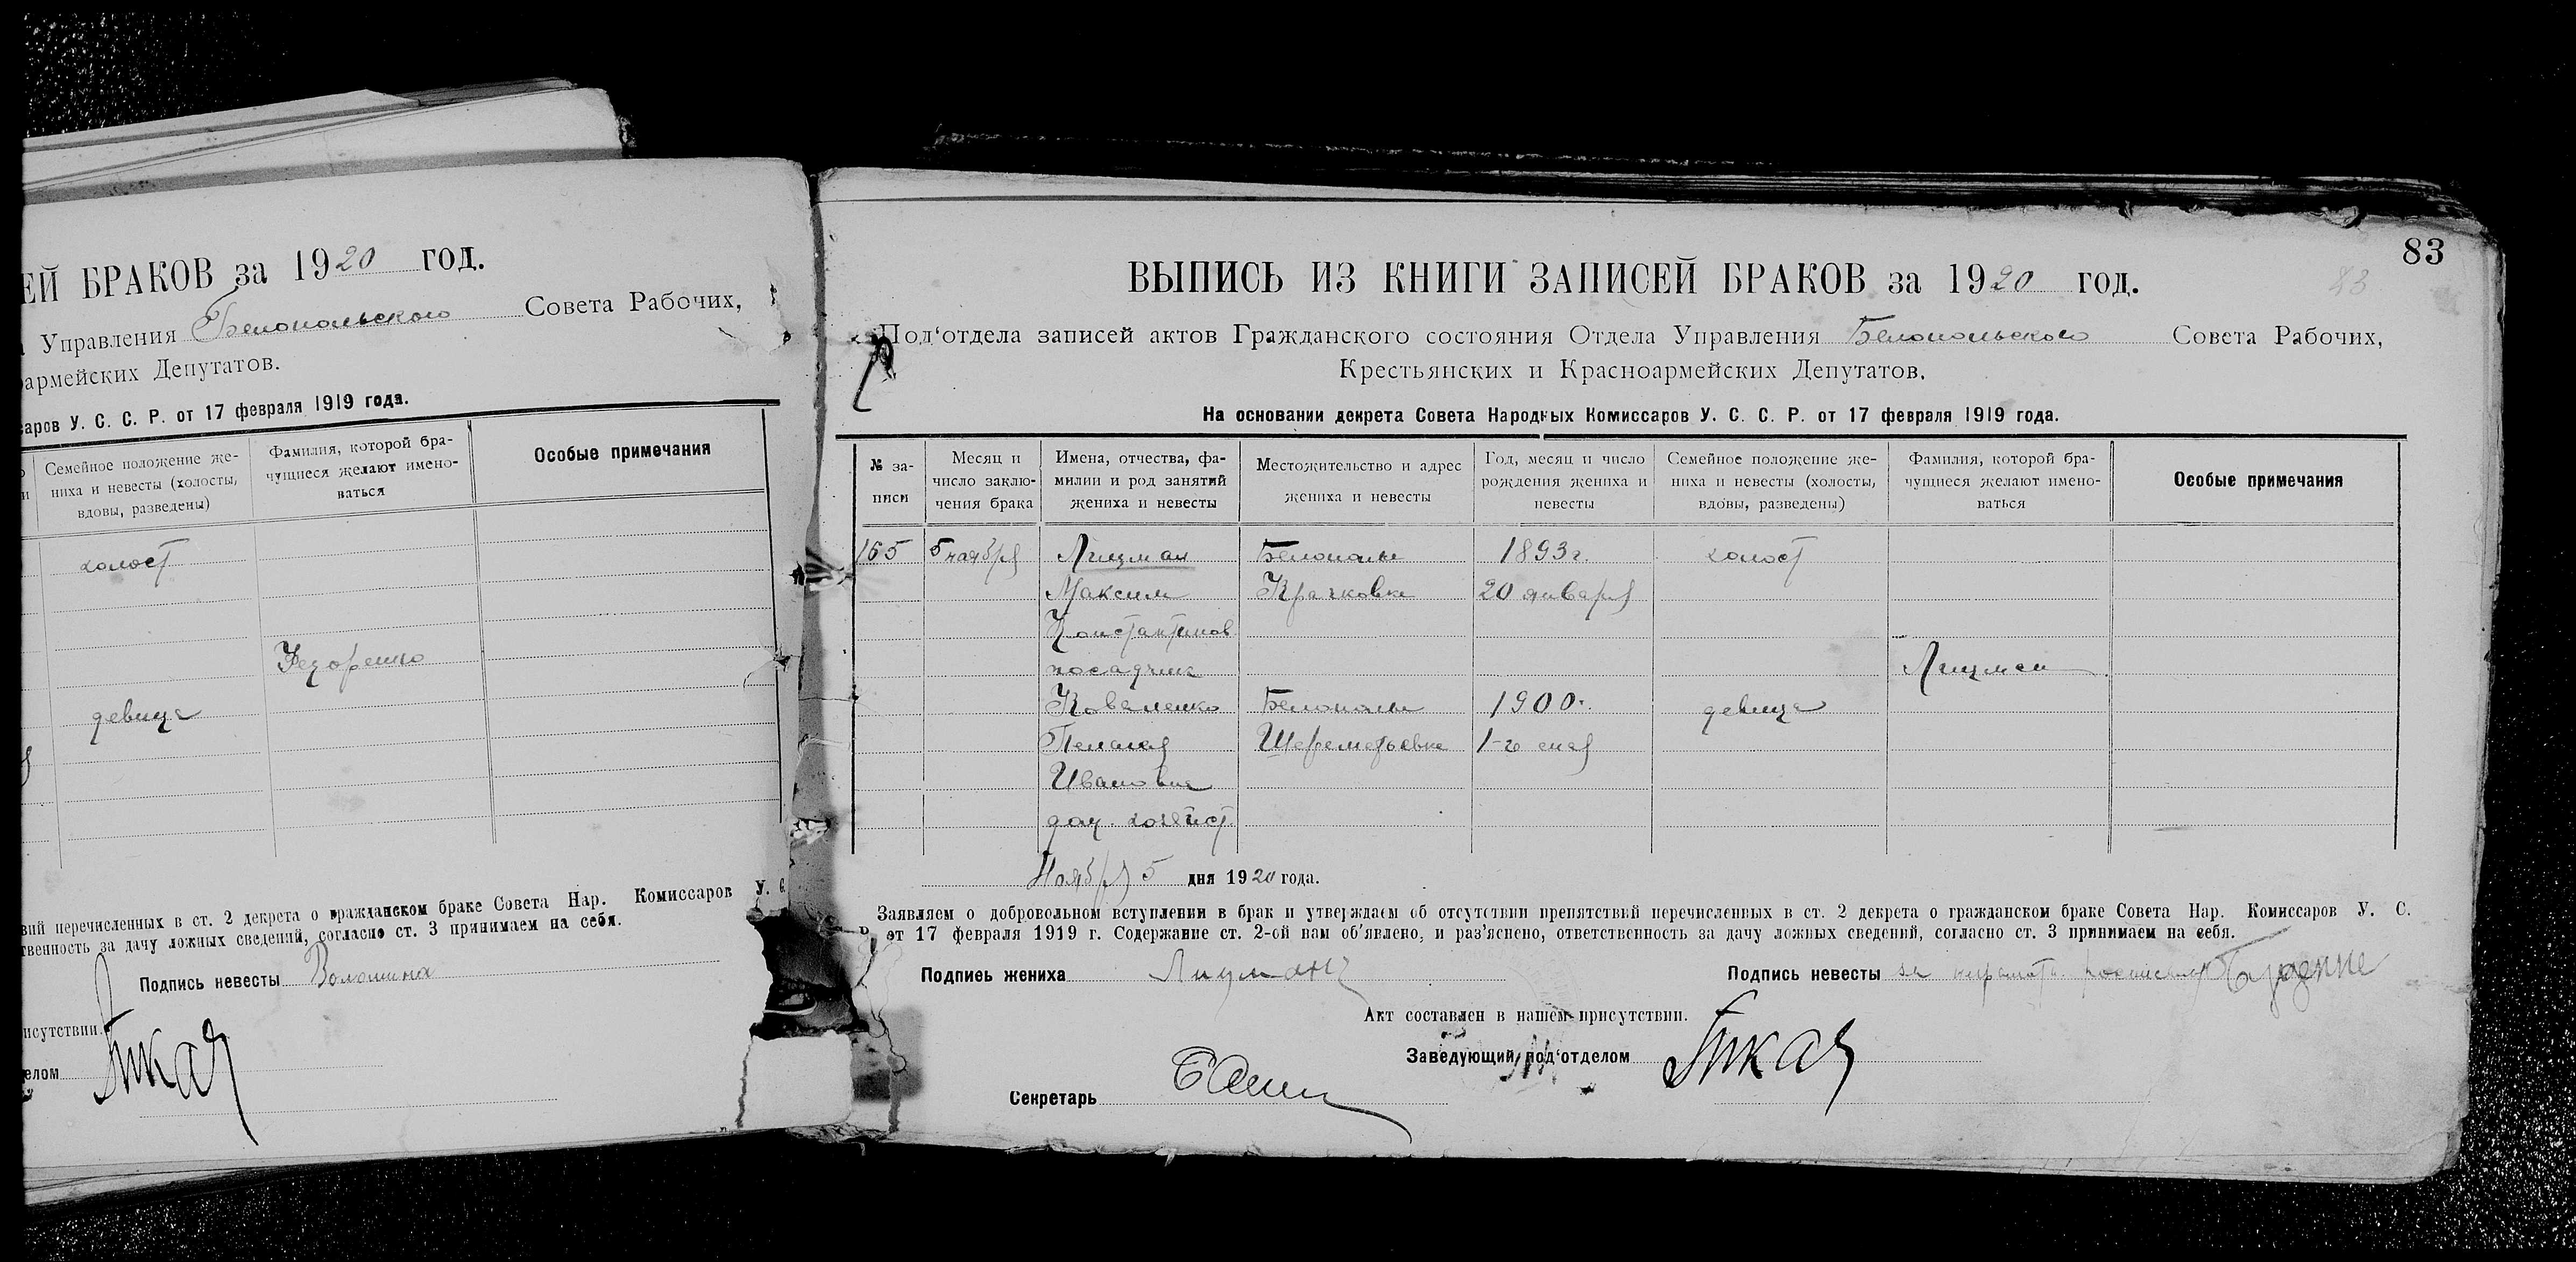 ЕЙ БРАКОВ за 1920 год.
Управления Белопольского Совета Рабочих,
армейских Депутатов.
саров У. С. С. Р. от 17 февраля 1919 года.
Семейное положение же-
ниха и невесты (холосты,
вдовы, разведены)
Фамилия, которой бра-
чущиеся желают имено-
ваться
Особые примечания
холост
Федоренко
девица
вий перечисленных в ст. 2 декрета о гражданском браке Совета Нар. Комиссаров У. С.
твенность за дачу ложных сведений, согласно ст. 3 принимаем на себя.
Подпись невесты Волошина
исутствии.
елом
83
83
ВЫПИСЬ ИЗ КНИГИ ЗАПИСЕЙ БРАКОВ за 1920 год.
Под'отдела записей актов Гражданского состояния Отдела Управления Белопольского Совета Рабочих,
Крестьянских и Красноармейских Депутатов.
На основании декрета Совета Народных Комиссаров У. С. С. Р. от 17 февраля 1919 года.
№ за-
писи
Месяц и
число заклю-
чения брака
Имена, отчества, фа-
милии и род занятий
жениха и невесты
Местожительство и адрес
жениха и невесты
Год, месяц и число
рождения жениха и
невесты
Семейное положение же-
ниха и невесты (холосты,
вдовы, разведены)
Фамилия, которой бра-
чущиеся желают имено-
ваться
Особые примечания
165 5 ноября Лицман Белополье 1893 г. холост
Максим Крачковка 20 января
Константинов
посадчик Лицман
Коваленко Белополье 1900. девица
Пелагея Шереметьевка 1-го мая
Ивановна
Ноября 5 дня 1920 года.
Заявляем о добровольном вступлении в брак и утверждаем об отсутствии препятствий перечисленных в ст. 2 декрета о гражданском браке Совета Нар. Комиссаров У. С.
Р. от 17 февраля 1919 г. Содержание ст. 2-ой нам об'явлено, и раз'яснено, ответственность за дачу ложных сведений, согласно ст. 3 принимаем на себя.
Подпись жениха Лицманъ
Подпись невесты за неграмотн.
Акт составлен в нашем присутствии.
Заведующий под'отделом
Секретарь